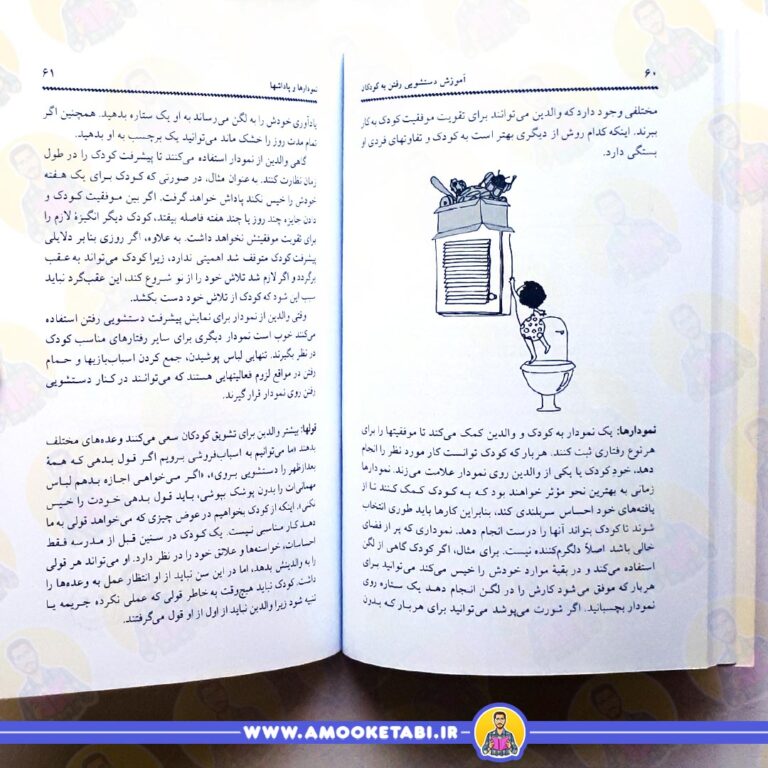 ۶۰
آموزش دستشویی رفتن به کودکان
مختلفی وجود دارد که والدین می‌توانند برای تقویت موفقیت کودک به کار
ببرند. اینکه کدام روش از دیگری بهتر است به کودک و تفاوتهای فردی او
بستگی دارد.
نمودارها: یک نمودار به کودک و والدین کمک می‌کند تا موفقیتها را برای
هر نوع رفتاری ثبت کنند. هربار که کودک توانست کار مورد نظر را انجام
دهد، خود کودک یا یکی از والدین روی نمودار علامت می‌زند. نمودارها
زمانی به بهترین نحو مؤثر خواهند بود که به کودک کمک کنند تا از
یافته‌های خود احساس سربلندی کند، بنابراین کارها باید طوری انتخاب
شوند تا کودک بتواند آنها را درست انجام دهد. نموداری که پر از فضای
خالی باشد اصلاً دلگرم‌کننده نیست. برای مثال، اگر کودک گاهی از لگن
استفاده می‌کند و در بقیهٔ موارد خودش را خیس می‌کند می‌توانید برای
هربار که موفق می‌شود کارش را در لگن انجام دهد یک ستاره روی
نمودار بچسبانید. اگر شورت می‌پوشد می‌توانید برای هربار که بدون
۶۱
نمودارها و پاداشها
یادآوری خودش را به لگن می‌رساند به او یک ستاره بدهید. همچنین اگر
تمام مدت روز را خشک ماند می‌توانید یک برچسب به او بدهید.
گاهی والدین از نمودار استفاده می‌کنند تا پیشرفت کودک را در طول
زمان نظارت کنند. به عنوان مثال، در صورتی که کودک برای یک هفته
خودش را خیس نکند پاداش خواهد گرفت. اگر بین موفقیت کودک و
دادن جایزه چند روز یا چند هفته فاصله بیفتد، کودک دیگر انگیزهٔ لازم را
برای تقویت موفقیتش نخواهد داشت. به علاوه، اگر روزی بنابر دلایلی
پیشرفت کودک متوقف شد اهمیتی ندارد، زیرا کودک می‌تواند به عقب
برگردد و اگر لازم شد تلاش خود را از نو شروع کند، این عقب‌گرد نباید
سبب این شود که کودک از تلاش خود دست بکشد.
وقتی والدین از نمودار برای نمایش پیشرفت دستشویی رفتن استفاده
می‌کنند خوب است نمودار دیگری برای سایر رفتارهای مناسب کودک
در نظر بگیرند. تنهایی لباس پوشیدن، جمع کردن اسباب‌بازیها و حمام
رفتن در مواقع لزوم فعالیتهایی هستند که می‌توانند در کنار دستشویی
رفتن روی نمودار قرار گیرند.
قولها: بیشتر والدین برای تشویق کودکان سعی می‌کنند وعده‌های مختلف
بدهند «ما می‌توانیم به اسباب‌فروشی برویم اگر قول بدهی که همهٔ
بعدازظهر را دستشویی بروی»، «اگر می‌خواهی اجازه بدهم لباس
مهمانی‌ات را بدون پوشک بپوشی، باید قول بدهی خودت را خیس
نکنی». اینکه از کودک بخواهیم در عوض چیزی که می‌خواهد قولی به ما
دهد کار مناسبی نیست. یک کودک در سنین قبل از مدرسه فقط
احساسات، خواسته‌ها و علائق خود را در نظر دارد. او می‌تواند هر قولی
را به والدینش بدهد، اما در این سن نباید از او انتظار عمل به وعده‌ها را
داشت. کودک نباید هیچ‌وقت به خاطر قولی که عملی نکرده جریمه یا
تنبیه شود زیرا والدین نباید از اول از او قول می‌گرفتند.
WWW.AMOOKETABI.IR